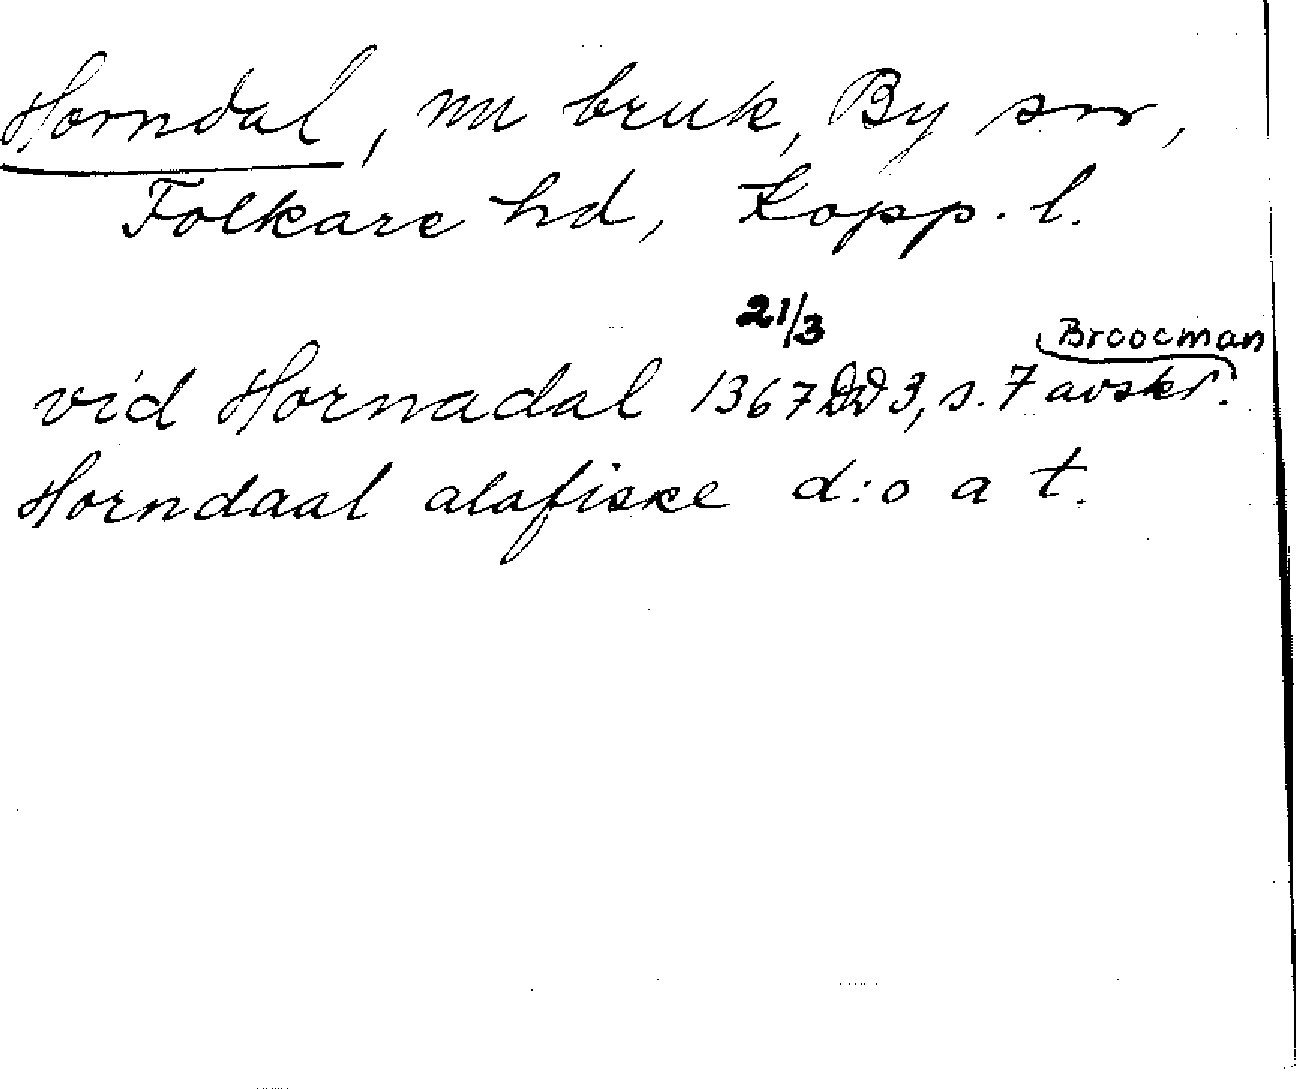 Horndal, nu bruk, By sn,
Folkare hd, Kopp. l.
21/3
Broocman
vid Hornadal 1367 DD 3, s. 7 avskr.
Horndaal alafiske d:o a t.